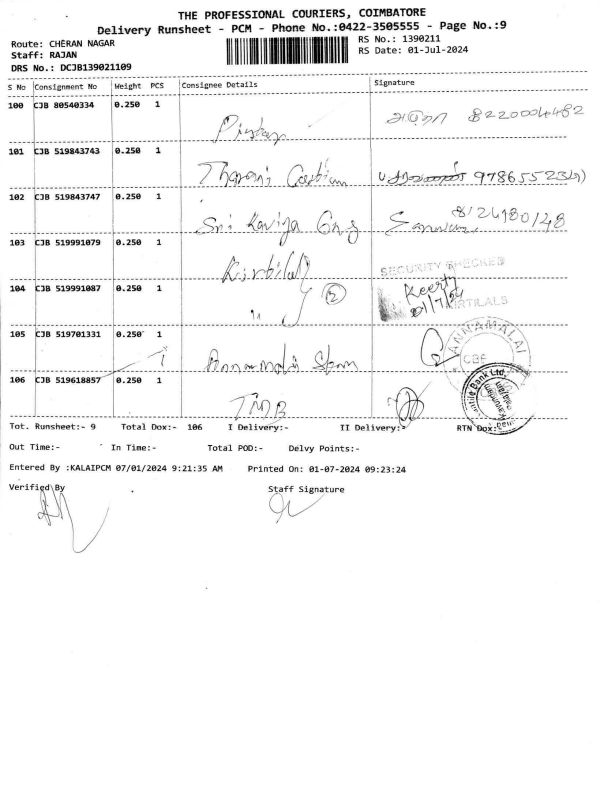 THE PROFESSIONAL COURIERS, COIMBATORE
Delivery Runsheet - PCM - Phone No.:0422-3505555 - Page No.:9
Route: CHERAN NAGAR
Staff: RAJAN
DRS No.: DCJB139021109
RS No.: 1390211
RS Date: 01-Jul-2024
S No Consignment No Weight PCS Consignee Details Signature
100 CJB 80540334 0.250 1 8220004482
101 CJB 519843743 0.250 1 Tharani
102 CJB 519843747 0.250 1 Sri Kaviya 8124980148
103 CJB 519991079 0.250 1 Kirtilal
SECURITY CHECKED
104 CJB 519991087 0.250 1 " 2 Keerthi
KIRTILALS
105 CJB 519701331 0.250 1 Annamalai
ANNAMALAI
CBE
106 CJB 519618857 0.250 1 TMB
Bank Ltd.
Tot. Runsheet:- 9 Total Dox:- 106 I Delivery:- II Delivery:- RTN Dox:
Out Time:- In Time:- Total POD:- Delvy Points:-
Entered By :KALAIPCM 07/01/2024 9:21:35 AM Printed On: 01-07-2024 09:23:24
Verified By Staff Signature